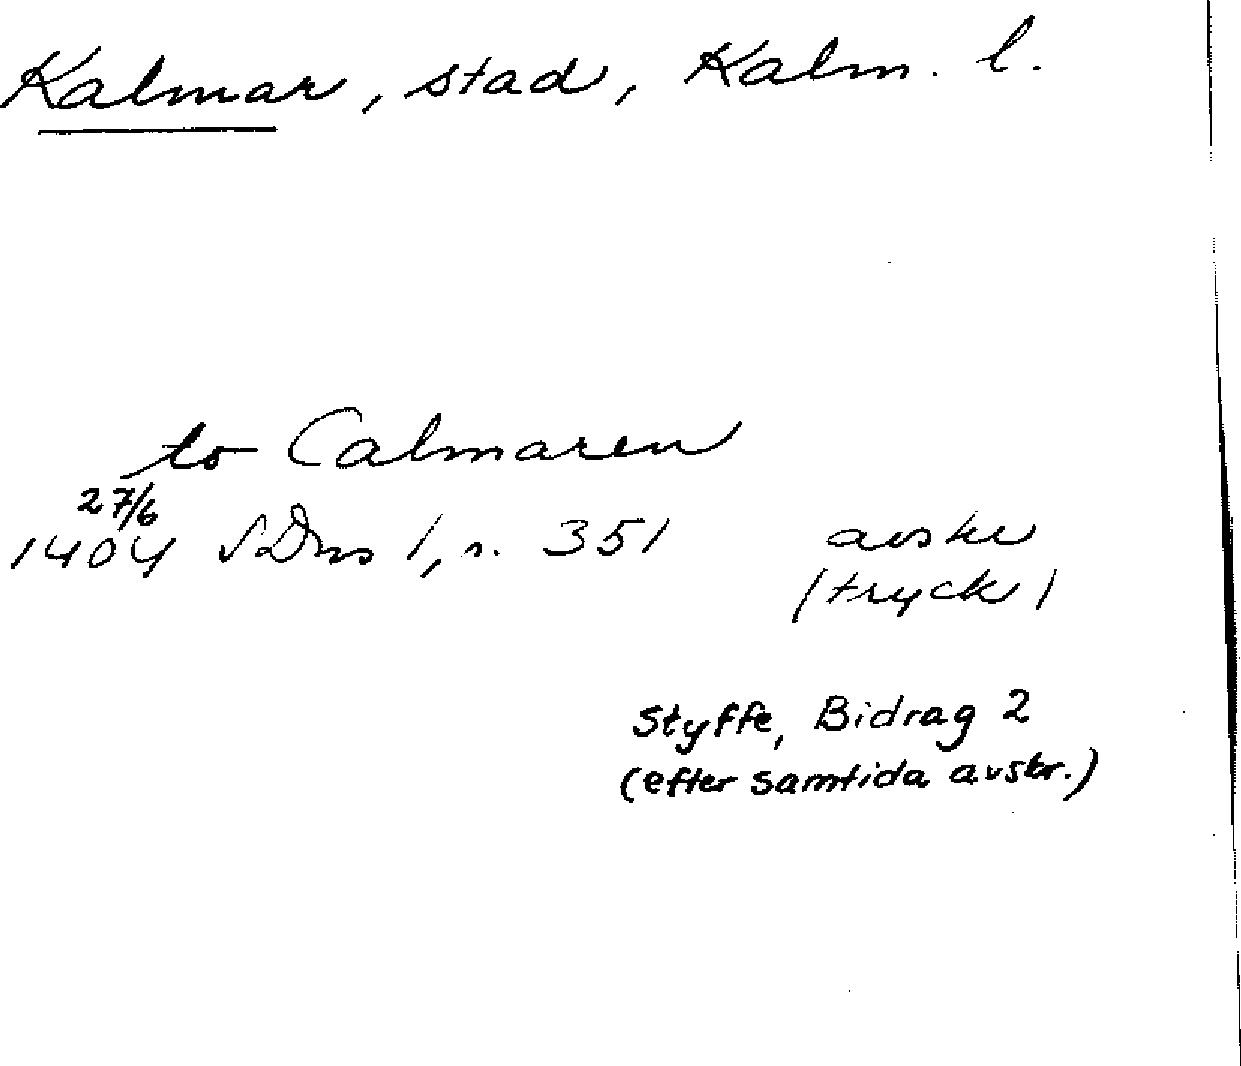 Kalmar, stad, Kalm. l.
to Calmaren
27/6
1404 SDns 1, s. 351 avskr
(tryck)
Styffe, Bidrag 2
(efter samtida avskr.)